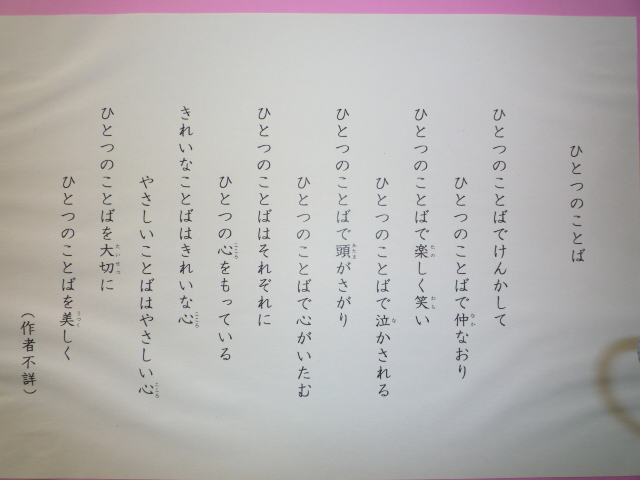 ひとつのことば
ひとつのことばでけんかして
ひとつのことばで仲なおり
ひとつのことばで楽しく笑い
ひとつのことばで泣かされる
ひとつのことばで頭がさがり
ひとつのことばで心がいたむ
ひとつのことばはそれぞれに
ひとつの心をもっている
きれいなことばはきれいな心
やさしいことばはやさしい心
ひとつのことばを大切に
ひとつのことばを美しく
（作者不詳）